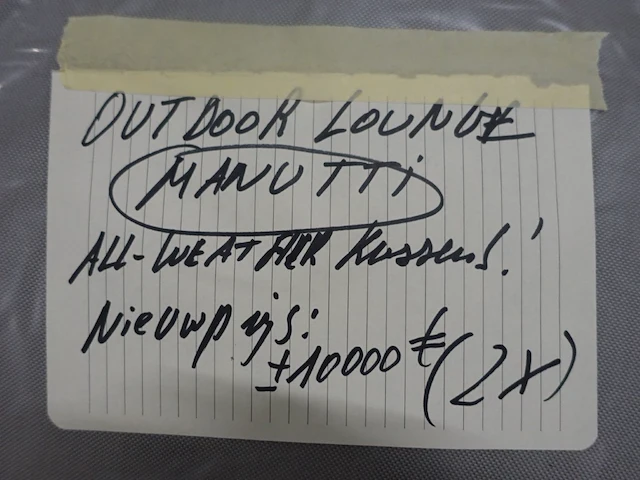 OUTDOOR LOUNGE
MANUTTI
ALL-WEATHER Kussens!
Nieuwprijs:
±10000€ (2X)